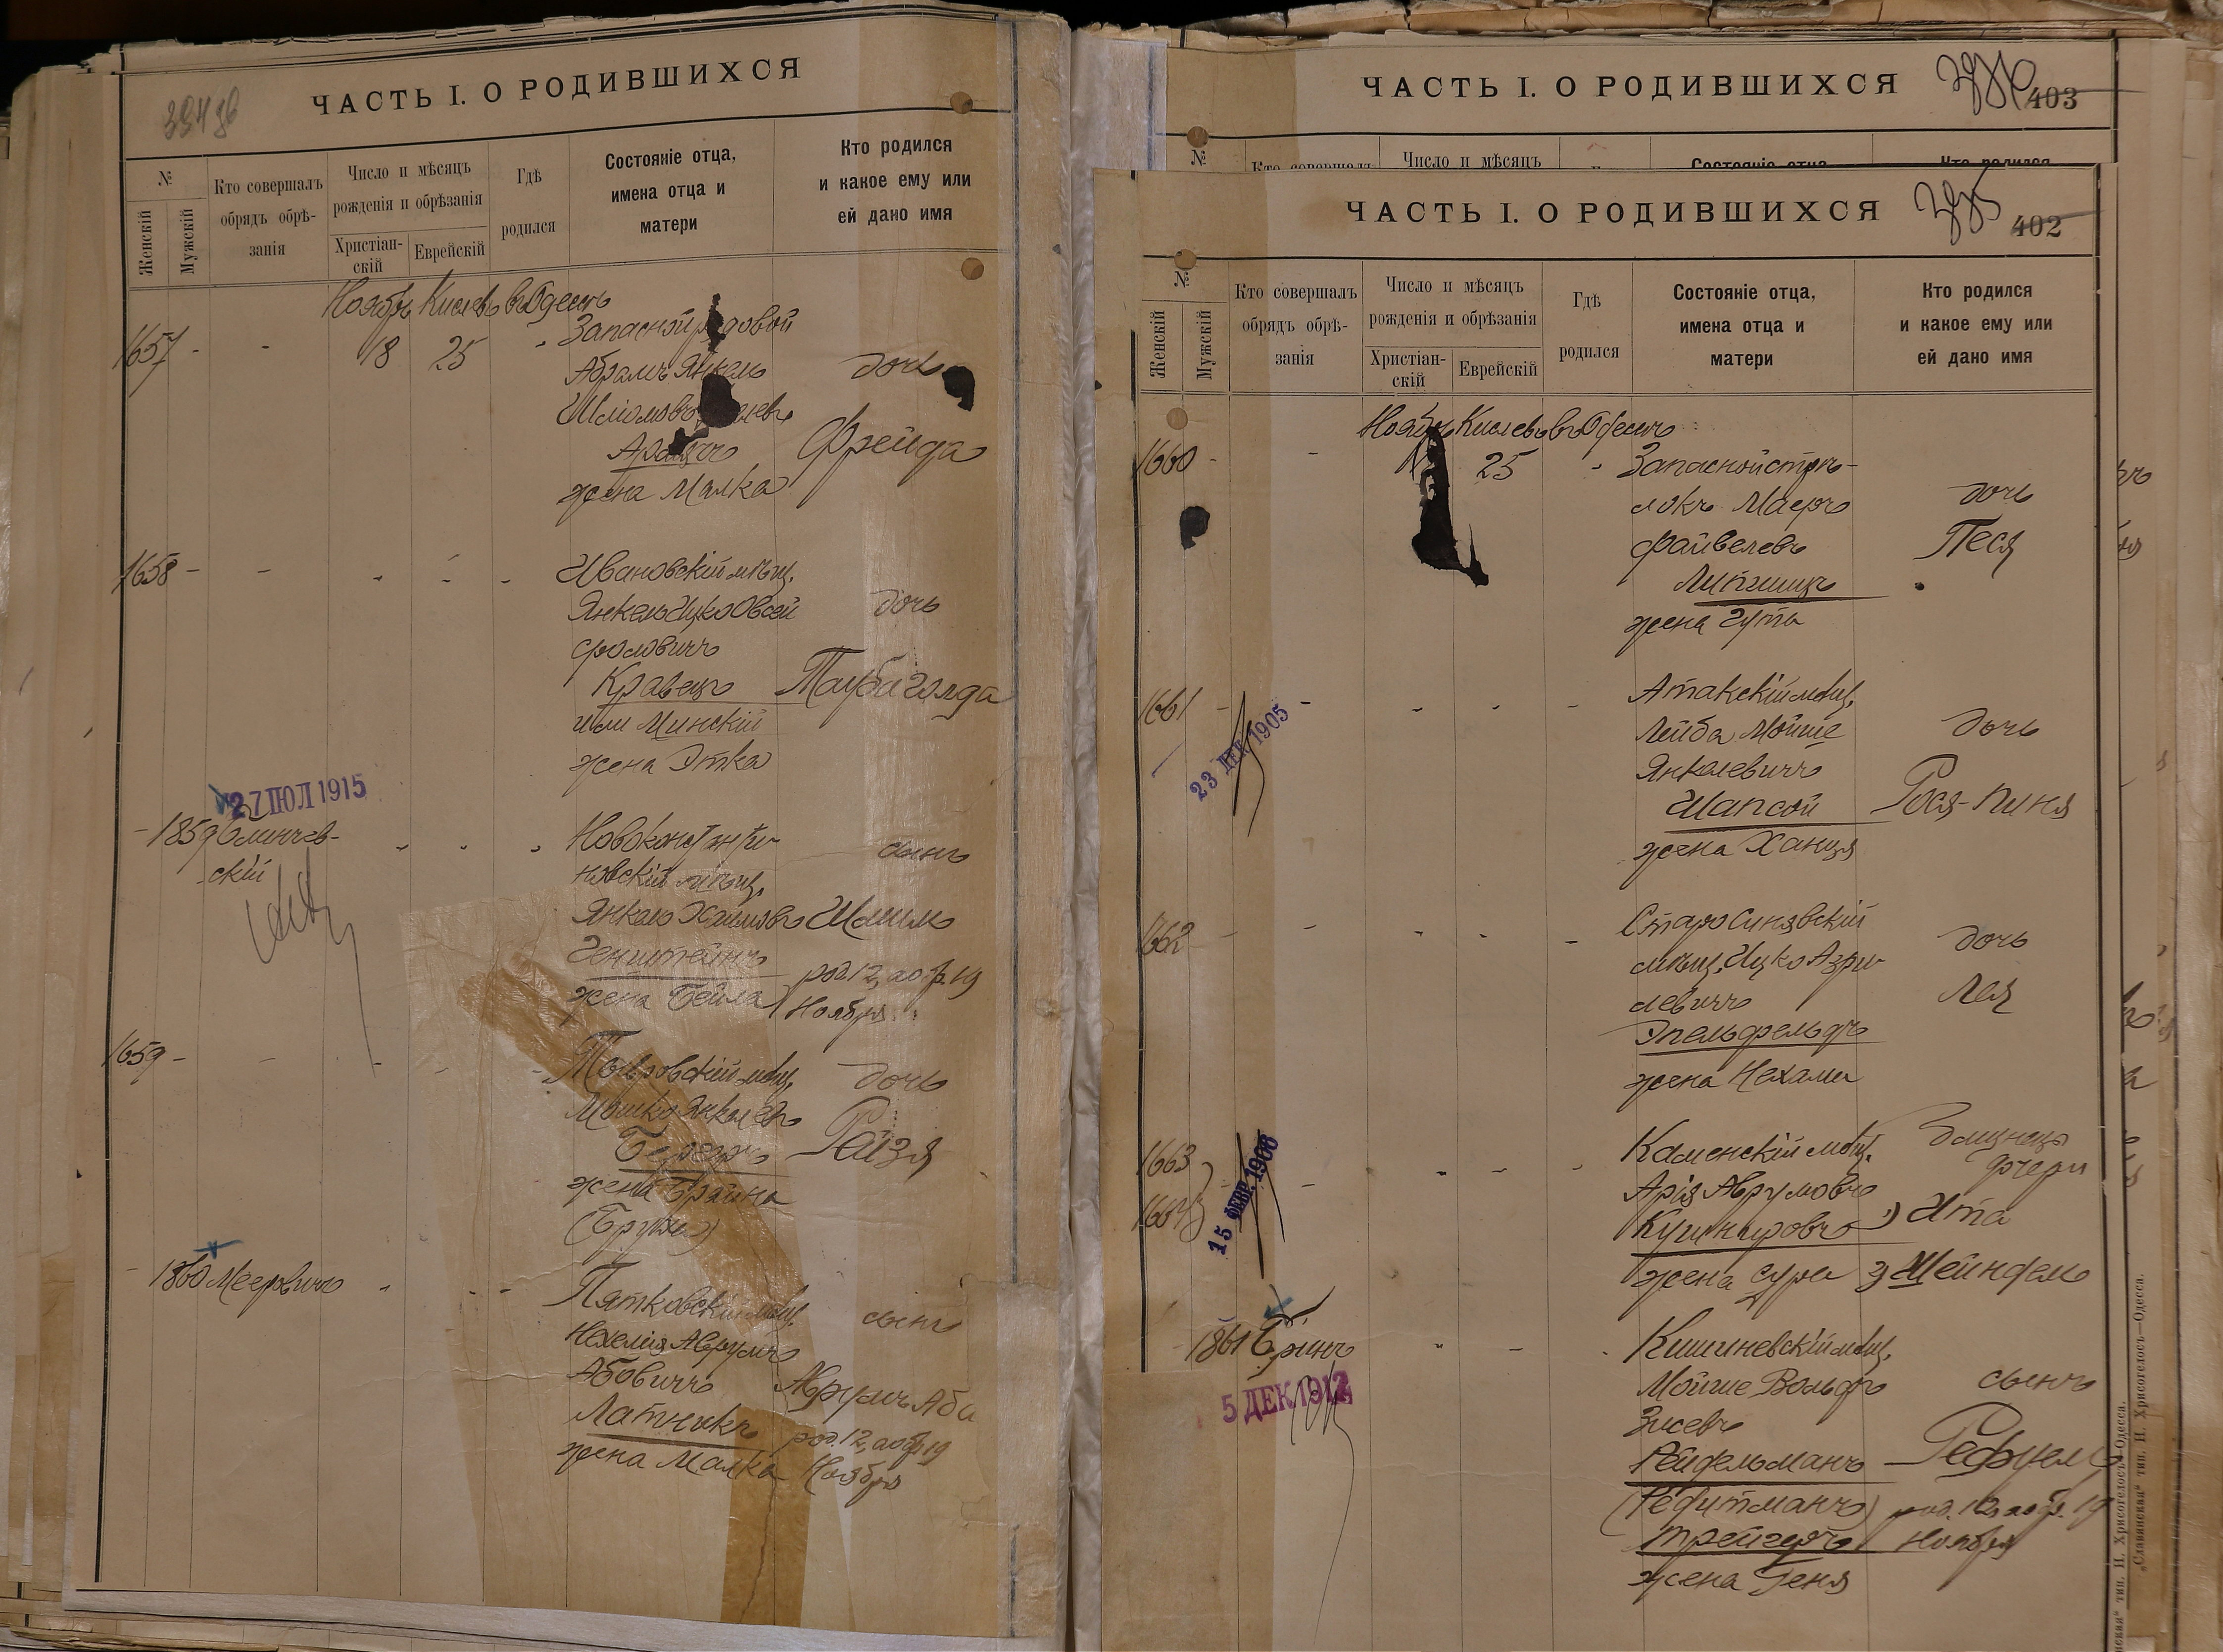 ЧАСТЬ I. О РОДИВШИХСЯ
№
Женскій
Мужскій
Кто совершалъ обрядъ обрѣ-
занія
Число и мѣсяцъ
рожденія и обрѣзанія
Христіан-
скій
Еврейскій
Гдѣ
родился
Состояніе отца,
имена отца и
матери
Кто родился
и какое ему или
ей дано имя
Ноябрь Кислевъ въ Одессѣ
1657 - - 18 25 Запасной рядовой
Абрамъ Янкель дочь
Фрейда
жена Малка
1658 - - Ивановскій мѣщ.
Янкель Ицко Овсей дочь
Фроловичъ
Кравецъ Тауба Голда
или Минскій
жена Этка
27 ІЮЛ 1915
- 1859 Новоконстанти-
скій сынъ
новскій мѣщ.
Янкель Хаимовъ Шлиом
Генштейнъ
род. 12, а обр. 19
жена Бейла Ноября
1659 - - мѣщ. дочь
Мошко Янкелев
Рейзя
жена Брайна
- 1860 Мееровичъ Пятковскій мѣщ. сынъ
Нехемія Аврумъ
Абовичъ Аврумъ Аба
Латникъ род. 12, а обр. 19
жена Малка Ноября
ЧАСТЬ I. О РОДИВШИХСЯ
403
№
Число и мѣсяцъ
ЧАСТЬ I. О РОДИВШИХСЯ
402
№
Женскій
Мужскій
Кто совершалъ
обрядъ обрѣ-
занія
Число и мѣсяцъ
рожденія и обрѣзанія
Христіан-
скій
Еврейскій
Гдѣ
родился
Состояніе отца,
имена отца и
матери
Кто родился
и какое ему или
ей дано имя
Ноябрь Кислевъ въ Одессѣ
1660 - - 25 Запасной стрѣ-
локъ Маеръ дочь
Файвелевъ Песя
Липшицъ
жена Гута
1661 - - Атакскій мѣщ.
23 ДЕК 1905
Лейба Мойше дочь
Янкелевичъ
Шапсой Рося-Пиня
жена Ханця
1662 - - Старосинявскій
мѣщ. Ицко Азри- дочь
левичъ Лея
Эпельфельдъ
жена Нехама
1663
1664
15 ФЕВР. 1908
Каменскій мѣщ. близнецы
дочери
Арія Аврумовъ
Кушнировъ 1) Ита
жена Сура 2) Шейндель
1861 Гринъ Кишиневскій мѣщ.
5 ДЕК 1912
Мойше Вольфъ сынъ
Зисевъ
Рейдельманъ Рефуель
род. 12, а обр. 19
Трейгеръ Ноября
жена Геня
„Славянская“ тип. Н. Хрисогелосъ—Одесса.